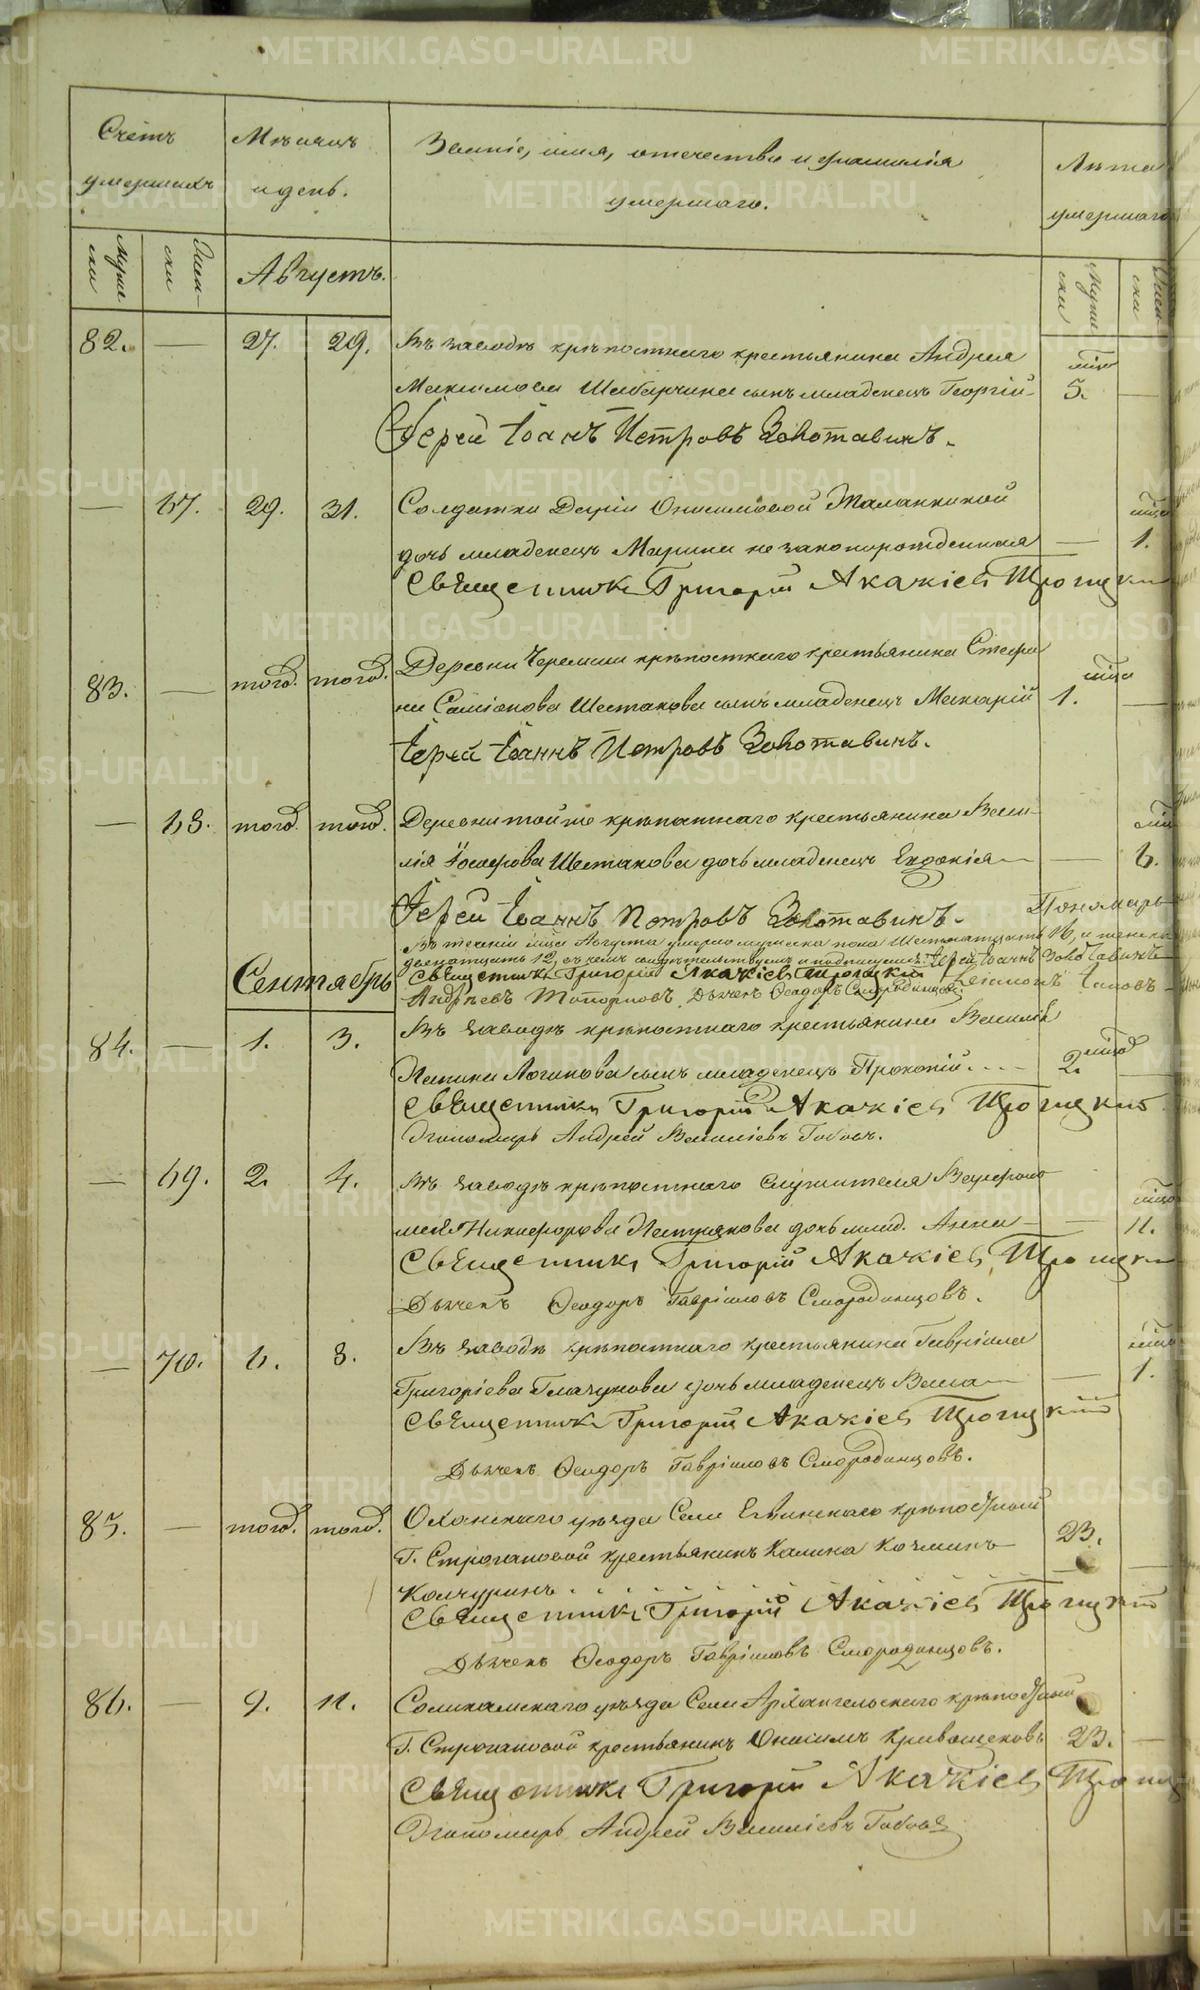 Счетъ умершихъ
Мѣсяцъ и день.
Званіе, имя, отечество и фамилія умершаго.
Лѣта умершаго
Муже ски
Жен- ски
Августъ.
Муже ски
Жен ски
82. — 27. 29. Въ заводѣ крѣпостнаго крестьянина Андрея мца
Максимова сынъ младенецъ Георгій 5. —
Іерей Іоаннъ Петровъ Золотавинъ.
— 67. 29. 31. Солдатки Дарьи Онисимовой Маланиной мца
дочь младенецъ Марина незаконорожденная — 1.
Священникъ Григорій Акакіевъ Троицкій
83. — тогож. тогож. Деревни Черемши крѣпостнаго крестьянина Стефа мца
на Самсонова Шестакова сынъ младенецъ Макарій 1. —
Іерей Іоаннъ Петровъ Золотавинъ.
— 68. тогож. тогож. Деревни тойже крѣпостнаго крестьянина Васи- мц
лія Шестакова дочь младенецъ Евдокія — 6.
Іерей Іоаннъ Петровъ Золотавинъ. Пономарь
Въ теченіи мца Августа умерло мужеска пола шестнатцать 16, и женска
двенатцать 12, въ чемъ свидетельствуемъ и подписуемся: Іерей Іоаннъ Золотавинъ
Священникъ Григорій Акакіевъ Троицкій
Андреевъ Топорковъ Дьячекъ Ѳеодоръ Смородинцовъ
Сентябрь
84. — 1. 3. Въ заводѣ крѣпостнаго крестьянина Василія
Логинова сынъ младенецъ Прокопій. 2. мцов
Священникъ Григорій Акакіевъ Троицкій
Пономарь Андрей Василіевъ
— 69. 2. 4. Въ заводѣ крѣпостнаго служителя Варфоло мцов
мея Никифорова дочь млад. Анна — 11.
Священникъ Григорій Акакіевъ Троицкій
Дьячекъ Ѳеодоръ Гавріиловъ Смородинцовъ.
— 70. 6. 8. Въ заводѣ крѣпостнаго крестьянина Гавріила мца
Григоріева Глазунова дочь младенецъ Васса — 1.
Священникъ Григорій Акакіевъ Троицкій
Дьячекъ Ѳеодоръ Гавріиловъ Смородинцовъ.
85. — тогож. тогож. Оханскаго уѣзда Села крѣпостный
Г. Строгановой крестьянинъ Калина 23. —
Колчуринъ
Священникъ Григорій Акакіевъ Троицкій
Дьячекъ Ѳеодоръ Гавріиловъ Смородинцовъ.
86. — 9. 11. Соликамскаго уѣзда Села Архангельскаго крѣпостный
Г. Строгановой крестьянинъ Онисимъ Кривощековъ 23. —
Священникъ Григорій Акакіевъ Троиц
Пономарь Андрей Василіевъ
METRIKI.GASO-URAL.RU